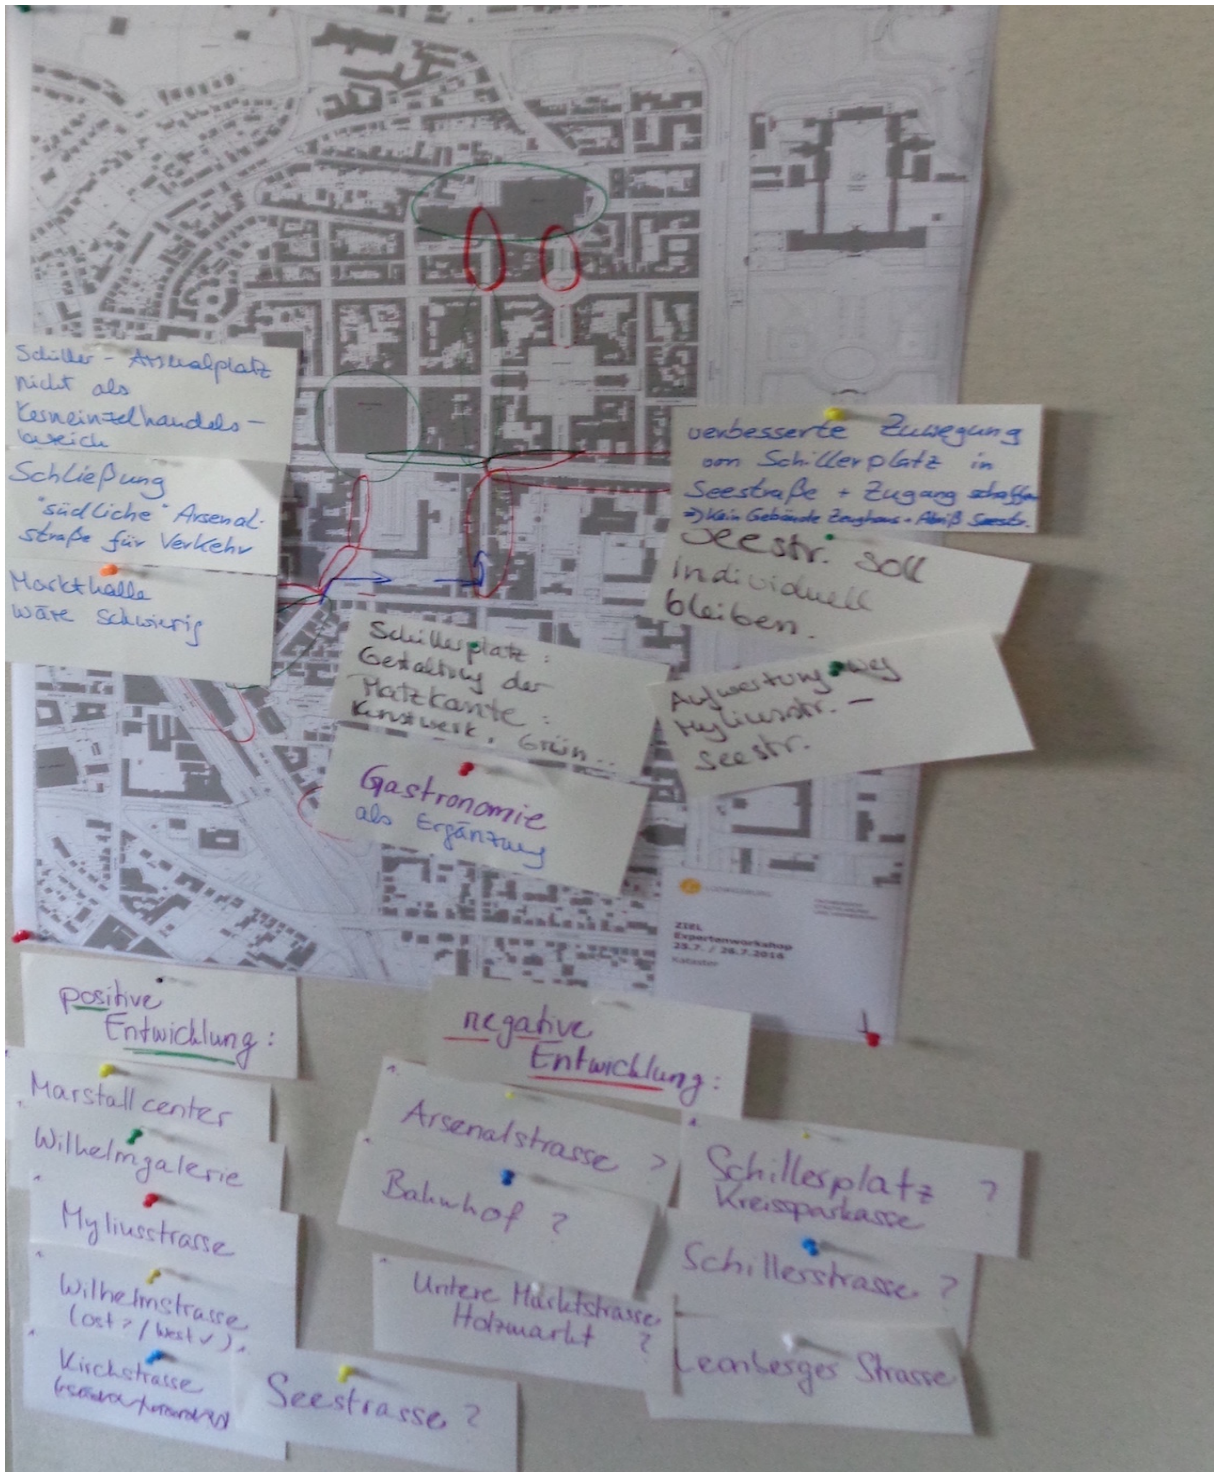 Schiller - Arsenalplatz
nicht als
Kerneinzelhandels-
bereich
Schließung
"südliche" Arsenal-
straße für Verkehr
Markthalle
wäre schwierig
verbesserte Zuwegung
von Schillerplatz in
Seestraße + Zugang schaffen
=> Kein Gebäude Zeughaus + Abriß Seestr.
Seestr. soll
individuell
bleiben.
Schillerplatz:
Gestaltung der
Platzkante:
Kunstwerk, Grün...
Aufwertung Weg
Myliusstr. -
Seestr.
Gastronomie
als Ergänzung
LUDWIGSBURG
ZIEL
Expertenworkshop
25.7. / 26.7.2014
Kataster
positive
Entwicklung:
Marstallcenter
Wilhelmgalerie
Myliusstrasse
Wilhelmstrasse
(ost? / West ✓).
Kirchstrasse
Seestrasse ?
negative
Entwicklung:
Arsenalstrasse ?
Bahnhof ?
Untere Marktstrasse
Holzmarkt ?
Schillerplatz ?
Kreissparkasse
Schillerstrasse ?
Leonberger Strasse